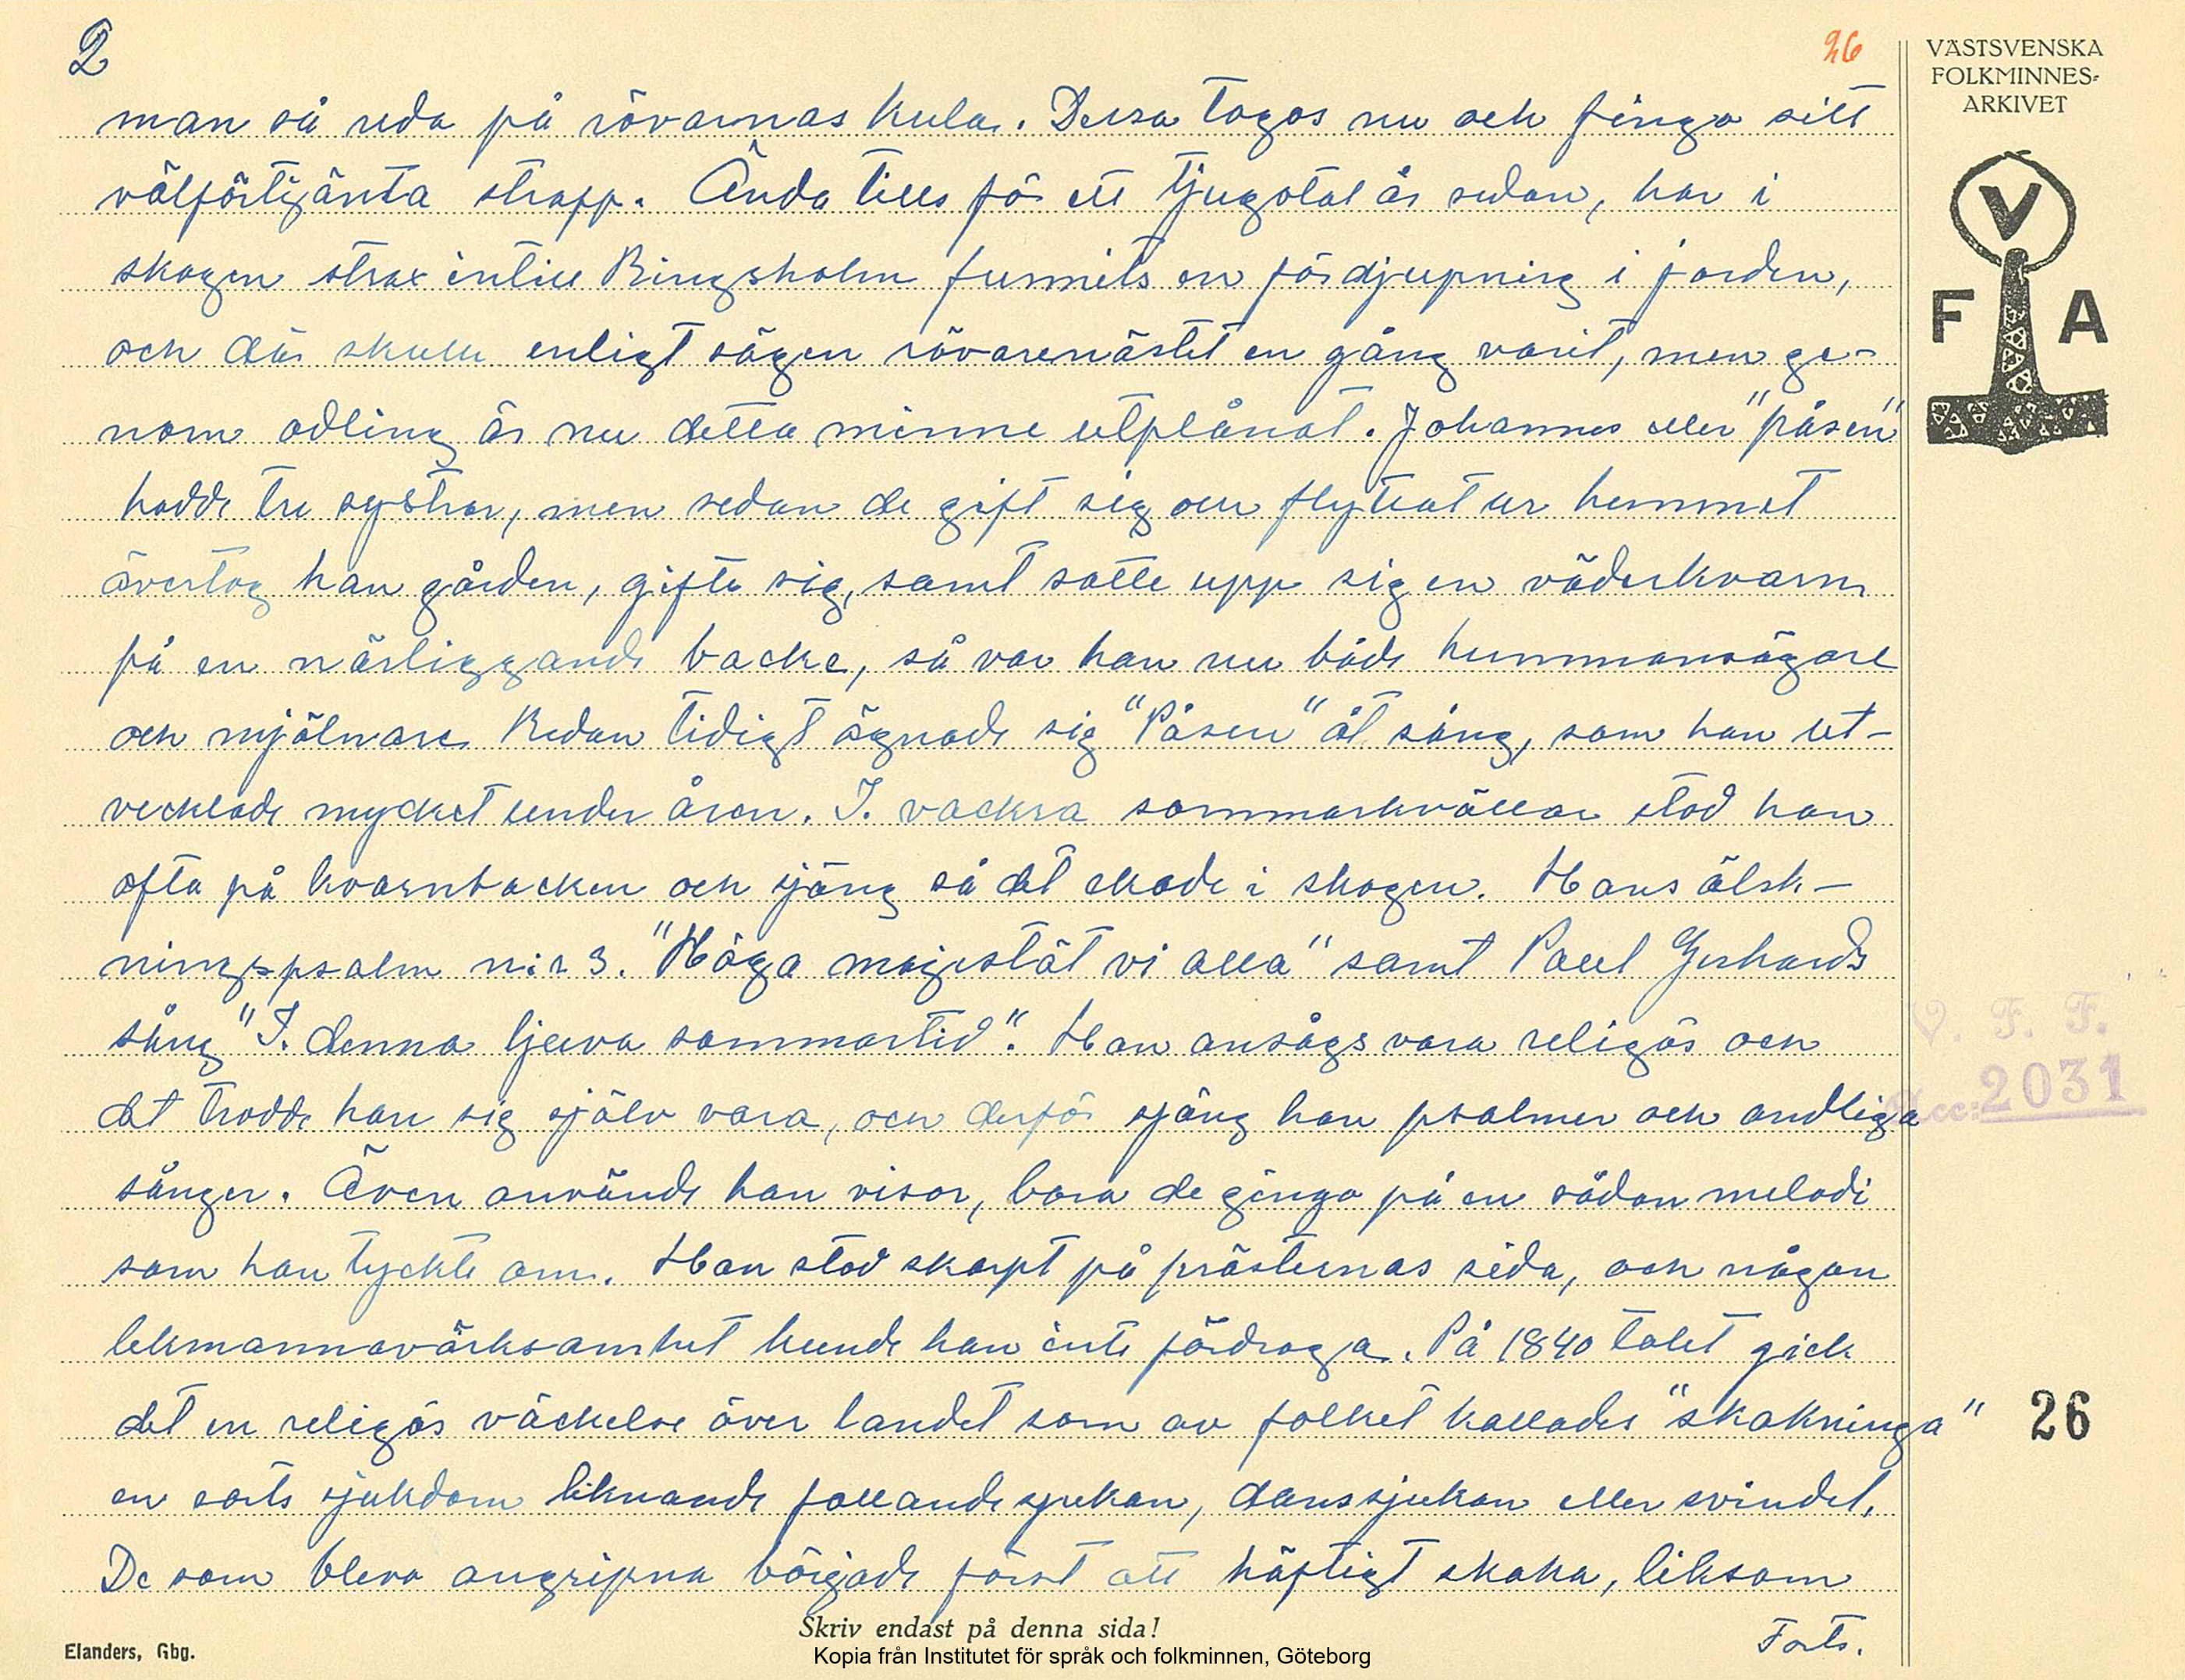 2
26
VÄSTSVENSKA
FOLKMINNES-
ARKIVET
V
F A
man så reda på rövarnas kula. Dessa togos nu och fingo sitt
välförtjänta straff. Ända tills för ett tjugotal år sedan, har i
skogen strax intill Ringsholm funnits en fördjupning i jorden,
och där skulle enligt sägen rövarenästet en gång varit, men ge-
nom odling är nu detta minne utplånat. Johannes eller "påsen"
hadde tre systrar, men sedan de gift sig och flyttat ur hemmet
övertog han gården, gifte sig, samt satte upp sig en väderkvarn
på en närliggande backe, så var han nu både hemmansägare
och mjölnare. Redan tidigt ägnade sig "Påsen" åt sång, som han ut-
vecklade mycket under åren. I. vackra sommarkvällar stod han
ofta på kvarnbacken och sjöng så det ekade i skogen. Hans älsk-
ningspsalm n:r 3. "Höga majestät vi alla" samt Paul Gerhards
sång "I. denna ljuva sommartid". Han ansågs vara religiös och
det trodde han sig själv vara, och derför sjöng han psalmer och andliga
sånger. Även använde han visor, bara de gingo på en sådan melodi
som han tyckte om. Han stod skarpt på prästernas sida, och någon
lekmannavärksamhet kunde han inte fördraga. På 1840 talet gick
det en religiös väckelse över landet som av folket kallades "skakninga"
en sorts sjukdom liknande fallandesjukan, danssjukan eller svindel.
De som bleva angripna började först att häftigt skaka, liksom
Forts.
V. F. F.
Acc: 2031
26
Skriv endast på denna sida!
Elanders, Gbg.
Kopia från Institutet för språk och folkminnen, Göteborg